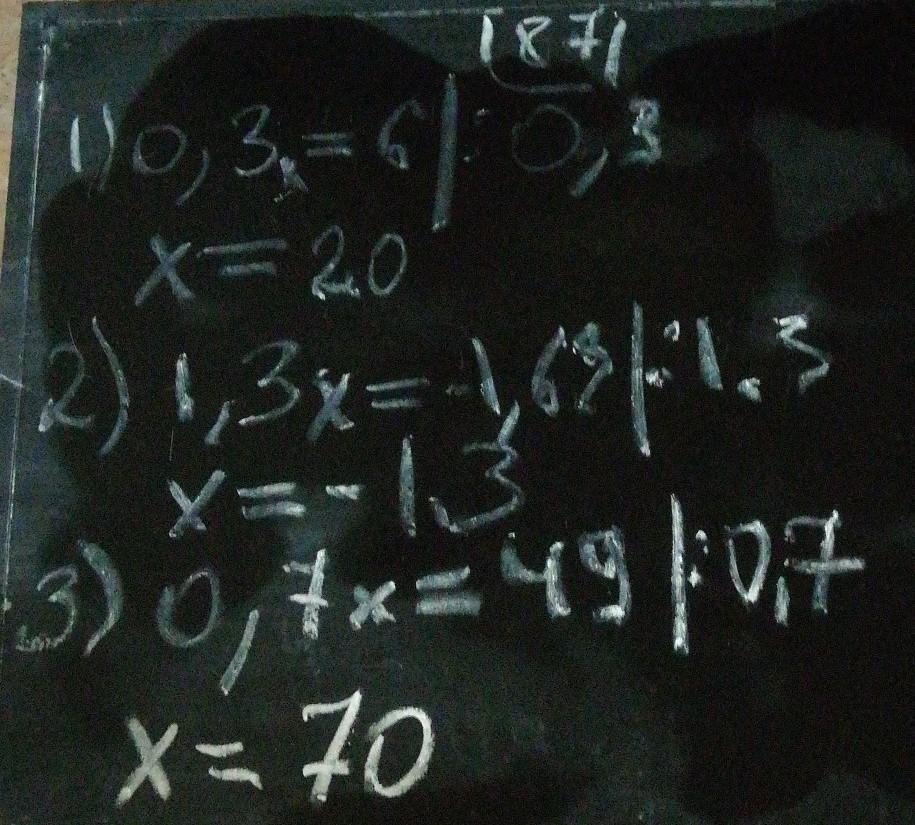 187
1) 0,3x = 6 | : 0,3
x = 20
2) 1,3x = -1,69 | : 1,3
x = -1,3
3) 0,7x = 49 | : 0,7
x = 70